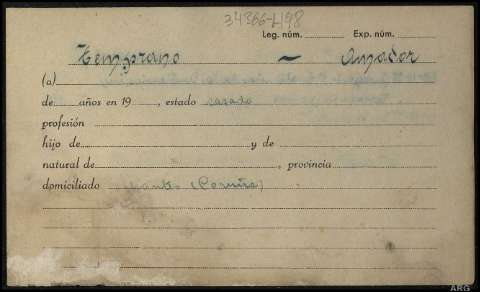 34366-L198
Leg. núm. Exp. núm.
Temprano — Amador
(a)
de años en 19 , estado casado
profesión
hijo de y de
natural de , provincia
domiciliado (Coruña)
ARG